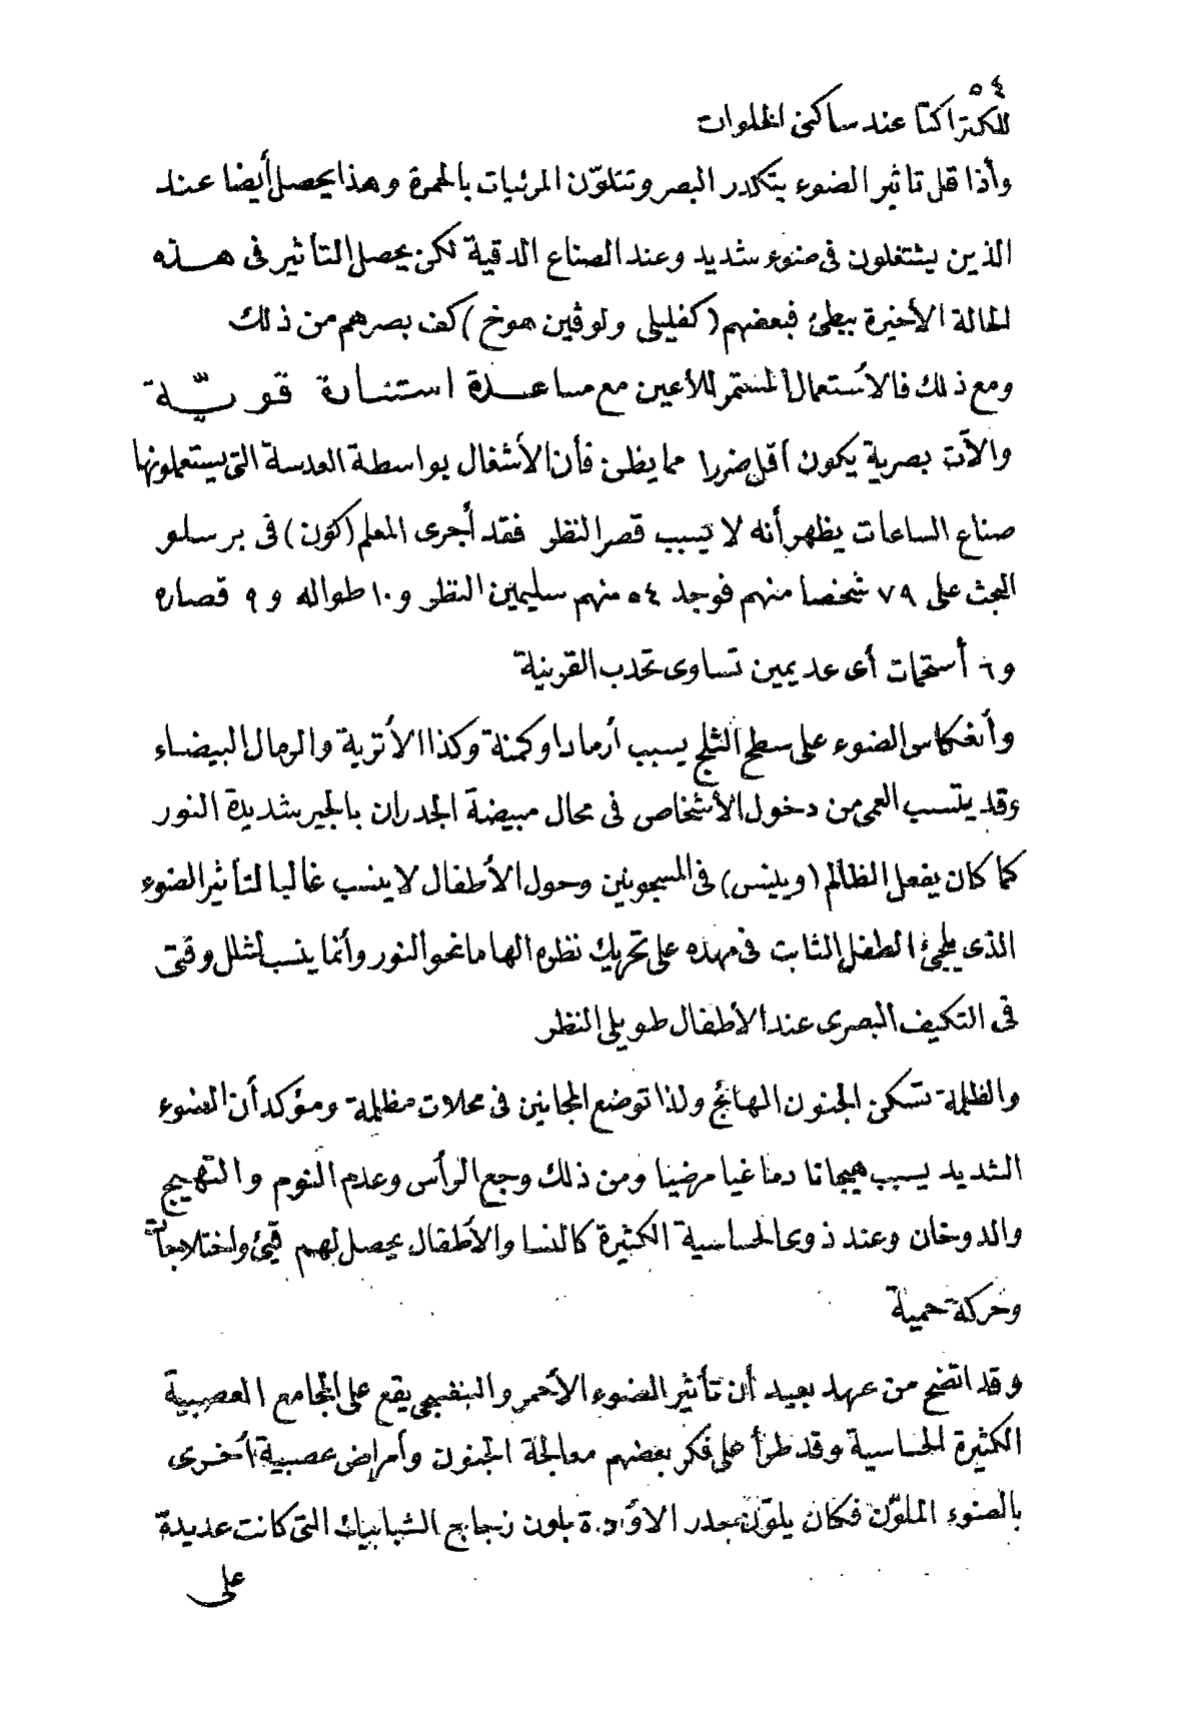 ٥٤
للكتراكتا عند ساكنى الخلوات
وأذا قل تاثير الضوء يتكدر البصر وتتلوّن المرئيات بالحمرة وهذا يحصل أيضا عند
الذين يشتغلون فى ضوء شديد وعند الصناع الدقية لكن يحصل التاثير فى هذه
الحالة الأخيرة ببطئ فبعضهم (كغليلى ولوڤين هوخ) كف بصرهم من ذلك
ومع ذلك فالأستعمال المستمر للأعين مع مساعدة استنارة قويّة
والآت بصرية يكون أقل ضررا مما يظن فأن الأشغال بواسطة العدسة التى يستعملونها
صناع الساعات يظهر أنه لا تيسبب قصر النظر فقد أجرى المعلم (كوّن) فى برسلو
البحث على ٧٩ شخصا منهم فوجد ٥٤ منهم سليمين النظر و ١٠ طواله و ٩ قصاره
و٦ أستجمات أى عديمين تساوى تحدب القرنية
وأنعكاس الضوء على سطح الثلج يسبب أرمادا وكمنة وكذا الأتربة والرمال البيضاء
وقد يتسبب العمى من دخول الأشخاص فى محال مبيضة الجدران بالجير شديدة النور
كما كان يفعل الظالم (وينس) فى المسجونين وحول الأطفال لا ينسب غالبا لتأثير الضوء
الذى يلجئ الطفل الثابت فى مهده على تحريك نظره الها مانحو النور وأنما ينسب لشلل وقتى
فى التكيف البصرى عند الأطفال طويلى النظر
والظلمة تسكن الجنون الهائج ولذا توضع المجانين فى محلات مظلمة ومؤكد أن الضوء
الشديد يسبب هيجانا دماغيا مرضيا ومن ذلك وجع الرأس وعدم النوم والتهيج
والدوخان وعند ذوى الحساسية الكثيرة كالنسا والأطفال يحصل لهم قيئ واختلاجات
وحركة حمية
وقد اتضح من عهد بعيد أن تأثير الضوء الأحمر والبنفسجى يقع على المجامع العصبية
الكثيرة الحساسية وقد طرأ على فكر بعضهم معالجة الجنون وأمراض عصبية أخرى
بالضوء الملوّن فكان يلوّن جدر الأوّدة بلون زجاج الشبابيك التى كانت عديدة
على